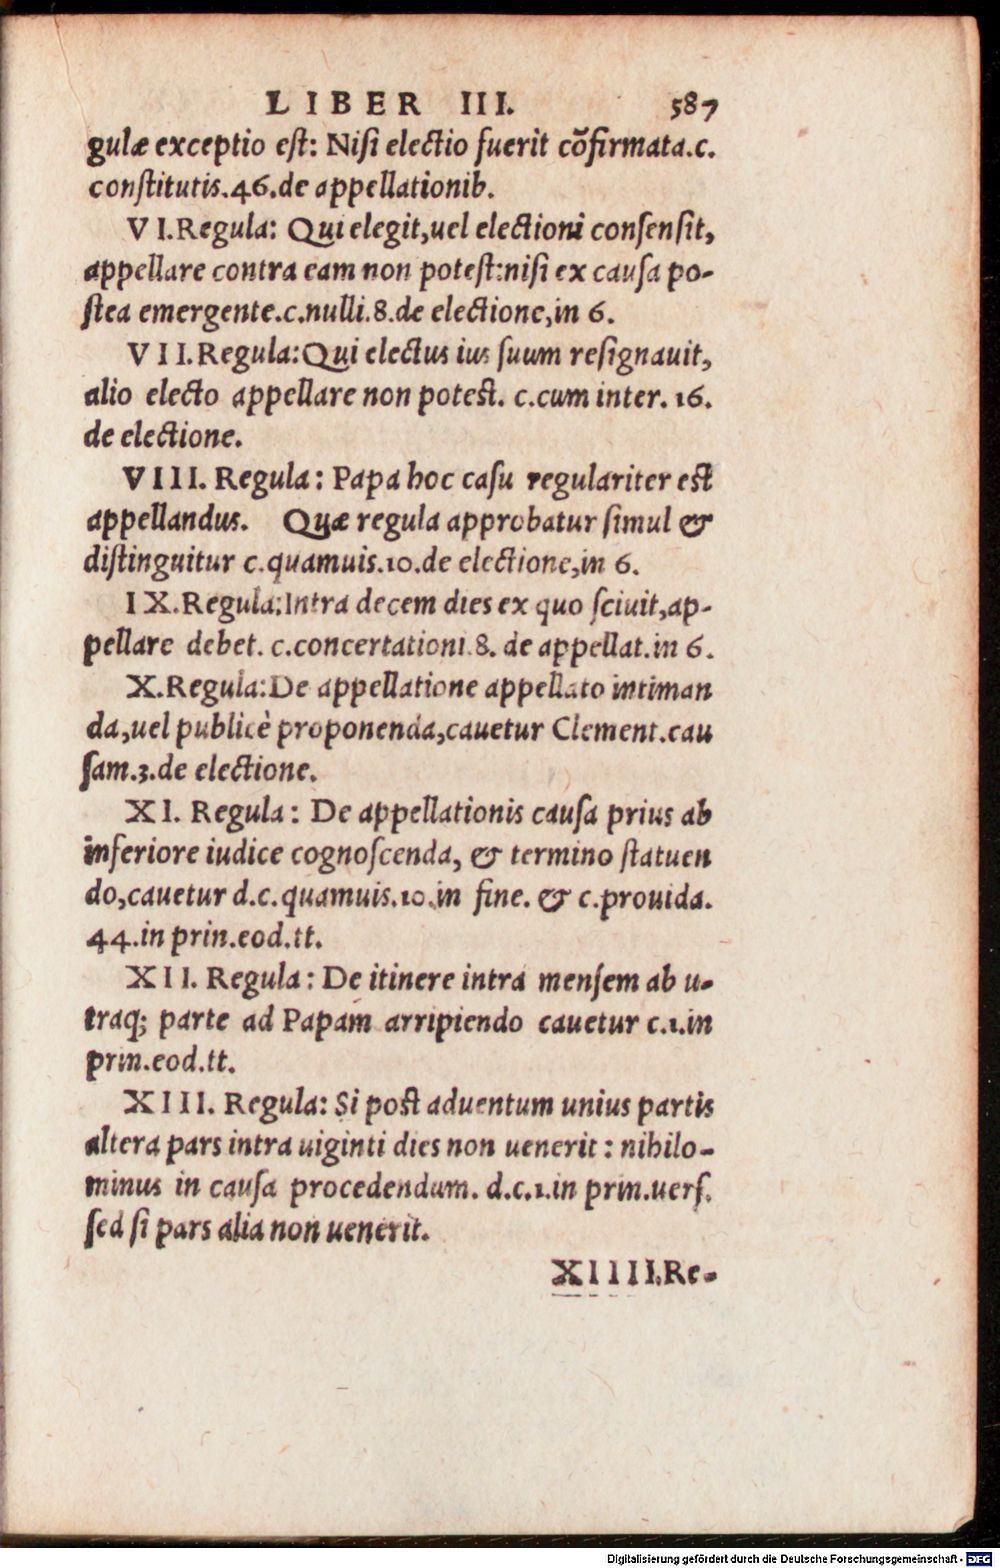 LIBER III. 587
gulæ exceptio eſt: Niſi electio fuerit cõfirmata.c.
conſtitutis.46.de appellationib.
VI.Regula: Qui elegit,uel electioni conſenſit,
appellare contra eam non poteſt:niſi ex cauſa po-
ſtea emergente.c.nulli.8.de electione,in 6.
VII.Regula:Qui electus ius ſuum reſignauit,
alio electo appellare non poteſt. c.cum inter. 16.
de electione.
VIII. Regula: Papa hoc caſu regulariter eſt
appellandus. Quæ regula approbatur ſimul &
diſtinguitur c.quamuis.10.de electione,in 6.
IX.Regula:Intra decem dies ex quo ſciuit,ap-
pellare debet. c.concertationi.8. de appellat.in 6.
X.Regula:De appellatione appellato intiman
da,uel publicè proponenda,cauetur Clement.cau
ſam.3.de electione.
XI. Regula: De appellationis cauſa prius ab
inferiore iudice cognoſcenda, & termino ſtatuen
do,cauetur d.c.quamuis.10.in fine. & c.prouida.
44.in prin.eod.tt.
XII. Regula: De itinere intra menſem ab u-
traq; parte ad Papam arripiendo cauetur c.1.in
prin.eod.tt.
XIII. Regula: Si poſt aduentum unius partis
altera pars intra uiginti dies non uenerit: nihilo-
minus in cauſa procedendum. d.c.1.in prin.uerſ.
ſed ſi pars alia non uenerit.
XIIII.Re-
Digitalisierung gefördert durch die Deutsche Forschungsgemeinschaft - DFG